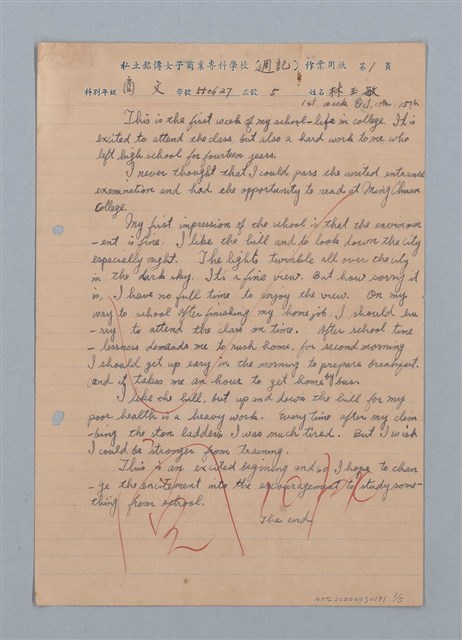 私立銘傳女子商業專科學校（週記）作業用紙 第 1 頁
科別年級 商文 學號 550627 座號 5 姓名 林玉敏
1st week Oct. 10th 15th
This is the first week of my school-life in college. It is
excited to attend the class, but also a hard work to me, who
left high school for fourteen years.
I never thought that I could pass the united entrance
examination and had the opportunity to read at Ming Chuan
College.
My first impression of the school is that the envirnom
-ent is fine. I like the hill and to look down the city
especially night. The lights twinkle all over the city
in the dark sky. It's a fine view. But how sorry it
is, I have no full time to enjoy the view. On my
way to school after finishing my home job, I should hu
-rry to attend the class on time. After school time
-lessness demands me to rush home, for second morning
I should get up eary in the morning to prepare breakfast.
and it takes me an hour to get home by bus.
I like the hill, but up and down the hill for my
poor health is a heavy work. Every time after my clim
-bing the ston ladders I was much tired. But I wish
I could be stronger from training.
This is an excited begining and so I hope to chan
-ge the excitement into the encouragement to study some-
thing from school.
The end
1/5